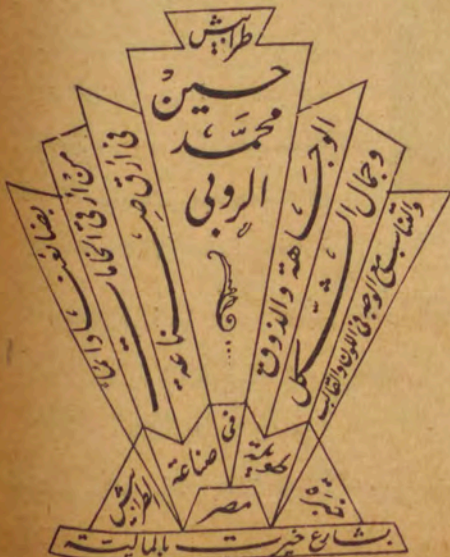 طرابيش
حسين
محمد
الروبي
الوجاهة والذوق
وجمال الشكل
والتناسب مع الوجه في اللون والقالب
في أرقى صناعة
من أرقى الخامات
في
صناعة
الطرابيش
مصر
بشارع خيرت بالمالية